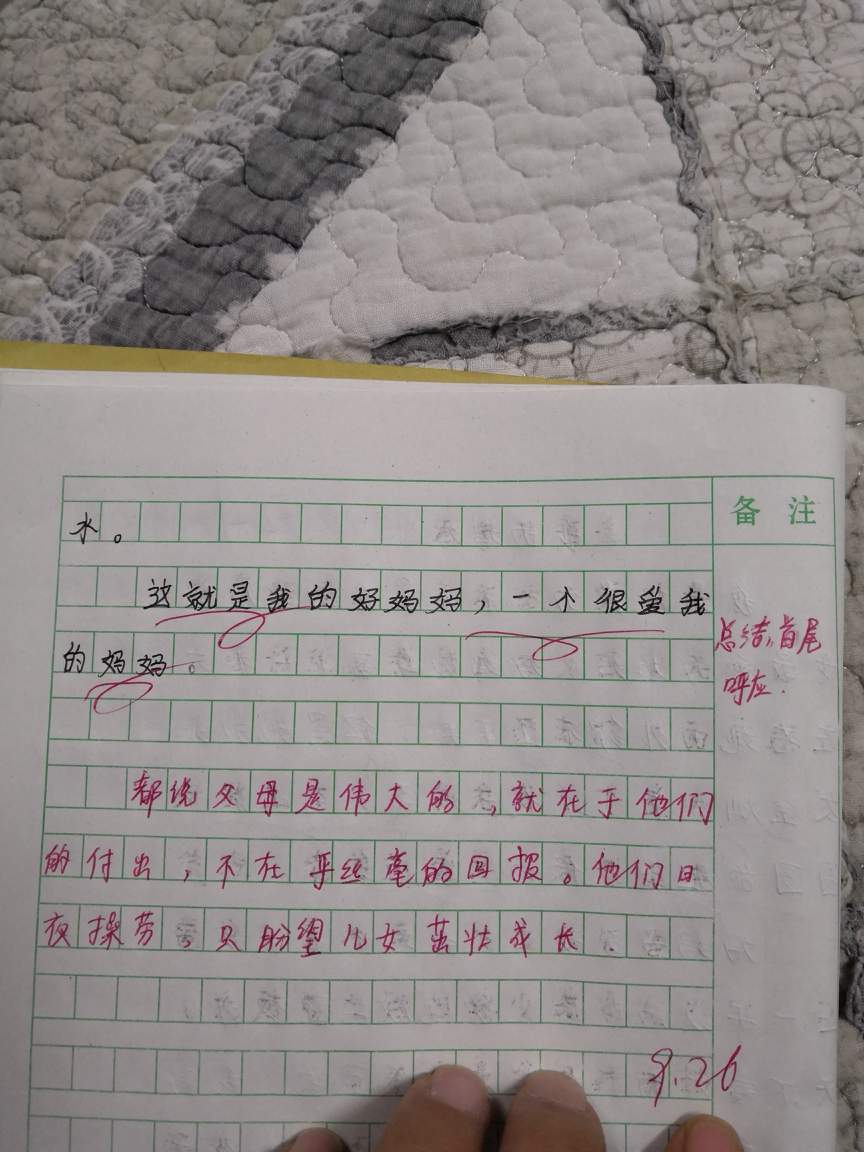 备 注
水。
这就是我的好妈妈，一个很爱我
的妈妈。
总结，首尾
呼应.
都说父母是伟大的，就在于他们
的付出，不在乎丝毫的回报。他们日
夜操劳，只盼望儿女茁壮成长
9.26